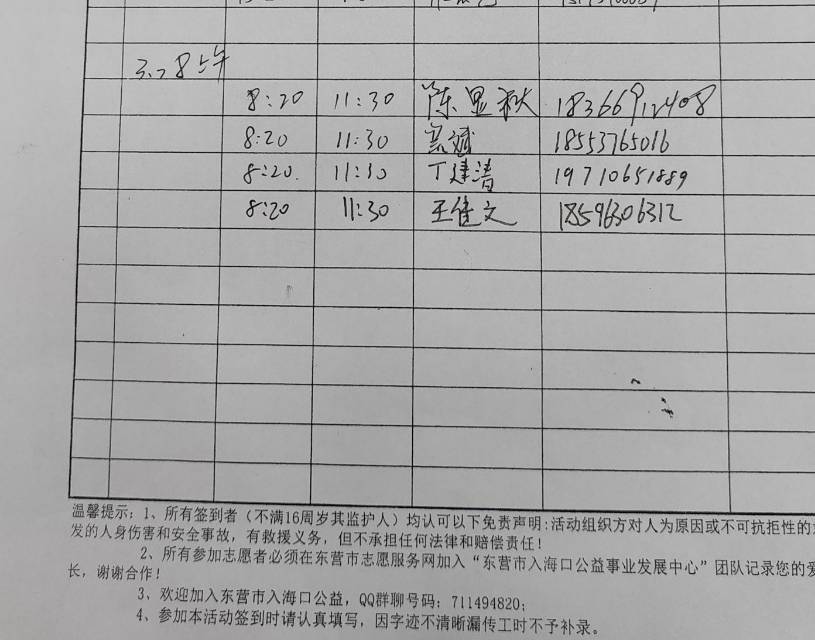 3.28上午
8:20 11:30 陈显秋 18366912408
8:20 11:30 斌 18553765016
8:20. 11:30 丁建清 19710651889
8:20 11:30 王佳文 18596306312
温馨提示：1、所有签到者（不满16周岁其监护人）均认可以下免责声明：活动组织方对人为原因或不可抗拒性的
发的人身伤害和安全事故，有救援义务，但不承担任何法律和赔偿责任！
2、所有参加志愿者必须在东营市志愿服务网加入“东营市入海口公益事业发展中心”团队记录您的爱
长，谢谢合作！
3、欢迎加入东营市入海口公益，QQ群聊号码：711494820；
4、参加本活动签到时请认真填写，因字迹不清晰漏传工时不予补录。